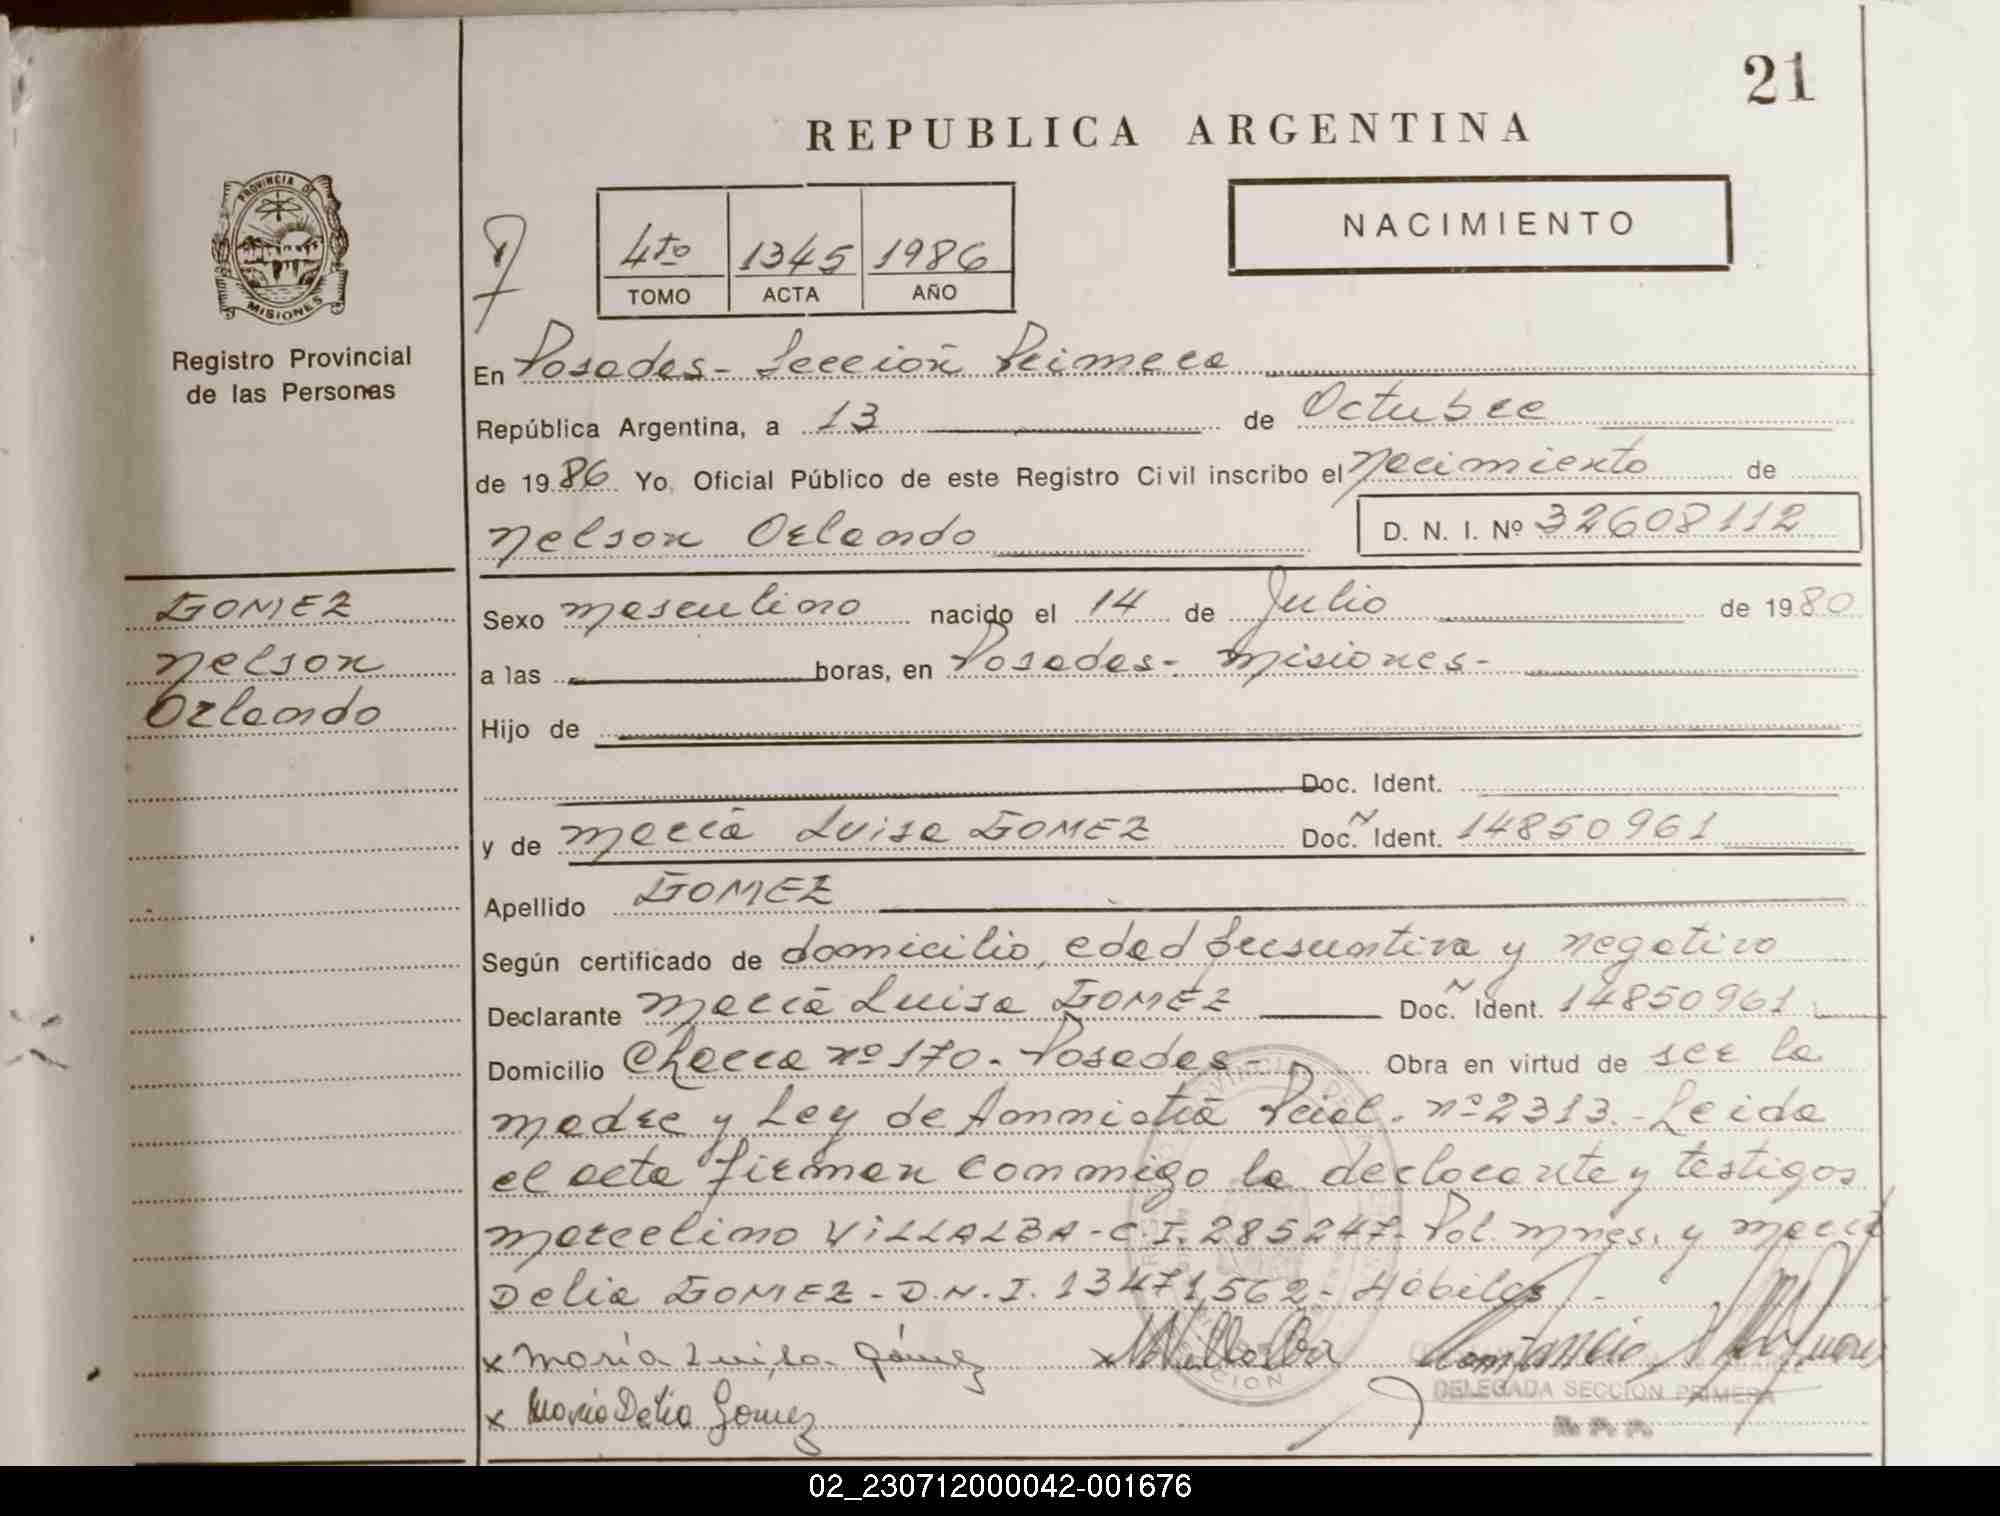 21
REPUBLICA ARGENTINA
PROVINCIA DE
MISIONES
Registro Provincial
de las Personas
4to 1345 1986
TOMO ACTA AÑO
NACIMIENTO
En Posadas - Sección Primera
República Argentina, a 13 de Octubre
de 1986 Yo, Oficial Público de este Registro Civil inscribo el Nacimiento de
Nelson Orlando D. N. I. Nº 32608112
GOMEZ
Nelson
Orlando
Sexo Masculino nacido el 14 de Julio de 1980
a las horas, en Posadas - Misiones -
Hijo de
Doc. Ident.
y de María Luisa GOMEZ Doc. Ident. 14850961
Apellido GOMEZ
Según certificado de domicilio, edad presuntiva y negativo
Declarante María Luisa GOMEZ Doc. Ident. 14850961
Domicilio Chacra nº 170 - Posadas - Obra en virtud de ser la
madre y Ley de Amnistía Pcial. nº 2313. - Leida
el acta firman conmigo la declarante y testigos
Marcelino VILLALBA - C.I. 285247 - Pol. Mnes. y María
Delia GOMEZ - D.N.I. 13471562 - Hábiles -
x María Luisa Gómez x MVillalba
DELEGADA SECCION PRIMERA
x María Delia Gomez
R. P. P.
02_230712000042-001676